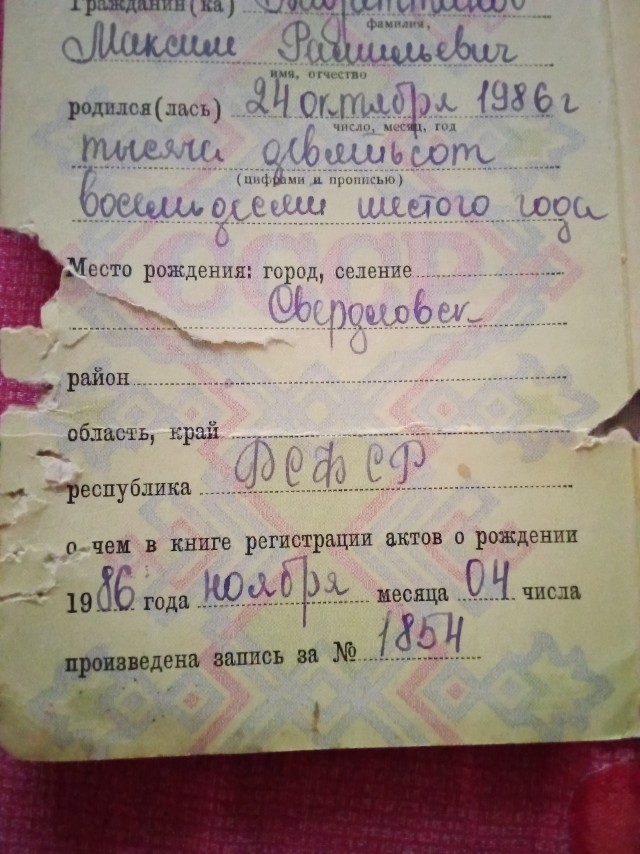 Гражданин(ка)
фамилия,
Максим Рамильевич
имя, отчество
родился(лась) 24 октября 1986 г
число, месяц, год
тысяча девятьсот
(цифрами и прописью)
восемьдесят шестого года
СССР
Место рождения: город, селение
Свердловск
район
область, край
республика РСФСР
о чем в книге регистрации актов о рождении
1986 года ноября месяца 04 числа
произведена запись за № 1854